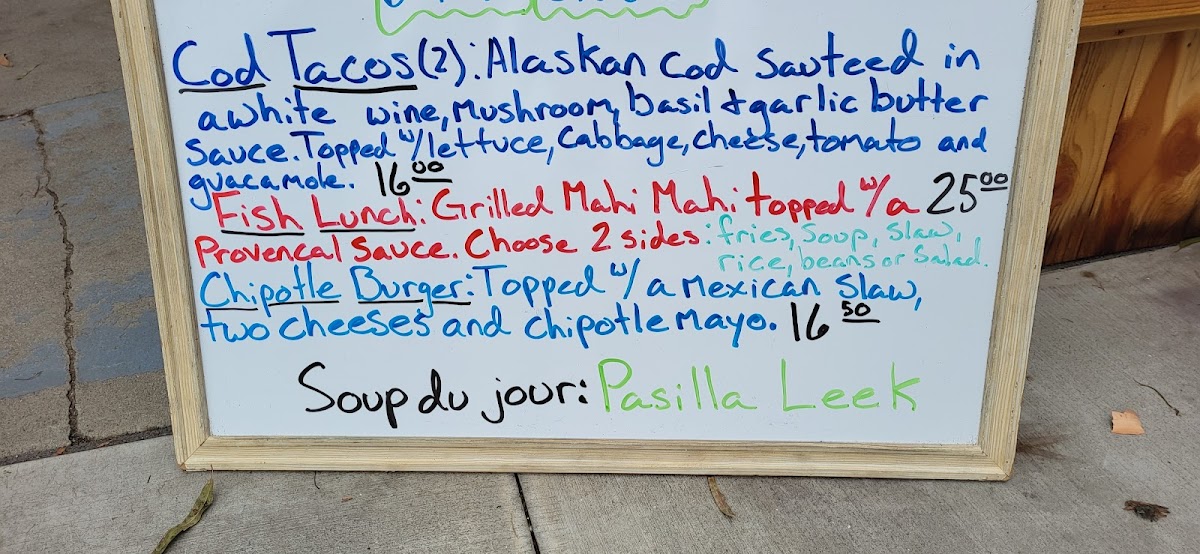 Cod Tacos(2): Alaskan Cod Sauteed in
a white wine, Mushroom, basil & garlic butter
Sauce. Topped w/ lettuce, Cabbage, cheese, tomato and
guacamole. 16 00
Fish Lunch: Grilled Mahi Mahi topped w/ a 25 00
Provencal Sauce. Choose 2 sides: fries, Soup, Slaw,
rice, beans or Salad.
Chipotle Burger: Topped w/ a Mexican Slaw,
two cheeses and chipotle mayo. 16 50
Soup du jour: Pasilla Leek